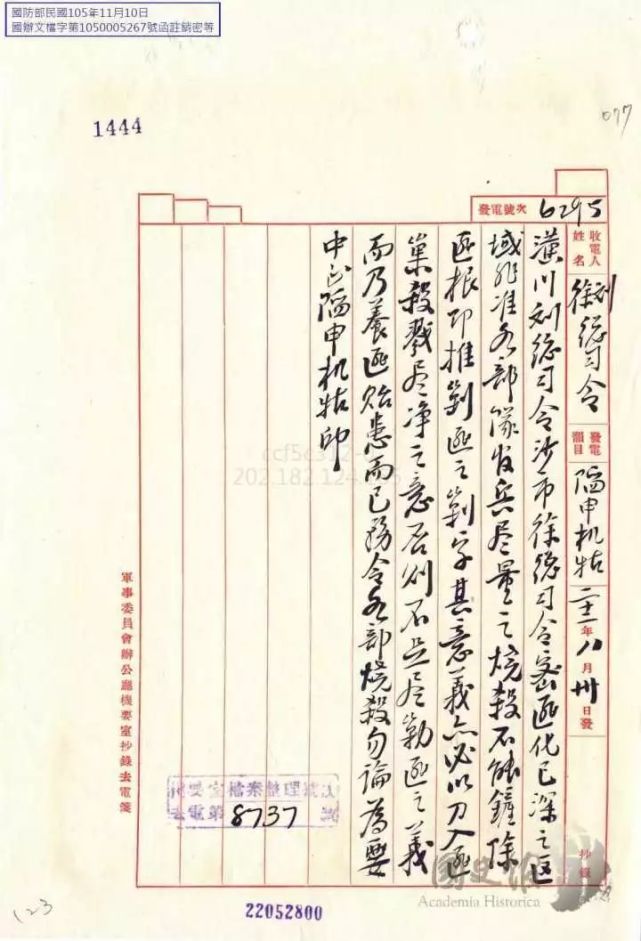 國防部民國105年11月10日
國辦文檔字第1050005267號函註銷密等
1444
077
發電號次 6295
收電人姓名 刘徐總司令 發電韻目 陷申机牯 二十一年八月卅日發 抄錄
潢川刘總司令沙市徐總司令密匪化已深之区
域非准各部隊放兵尽量之燒殺不能鏟除
匪根即推剿匪之剿字其意義亦必以刀入匪
巢殺戮尽净之意否则不足尽剿匪之義
而乃養匪贻患而已務令各部燒殺勿論為要
中正陷申机牯印
軍事委員會辦公廳機要室抄錄去電箋
機要室檔案整理
去電第 8737 號
國史館
Academia Historica
22052800
123